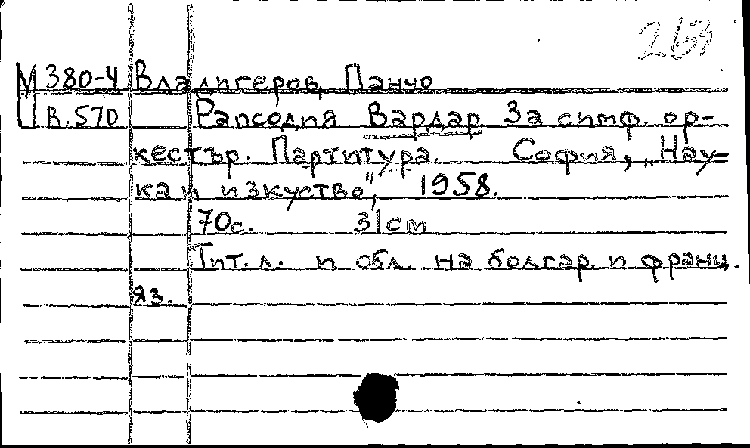 263
М 380-4 Владигеров, Панчо
Ц В.570 Рапсодия Вардар За симф. ор-
кестър. Партитура. София, „Нау-
ка и изкуство", 1958.
70с. 31см
Тит. л. и обл. на болгар. и франц.
яз.